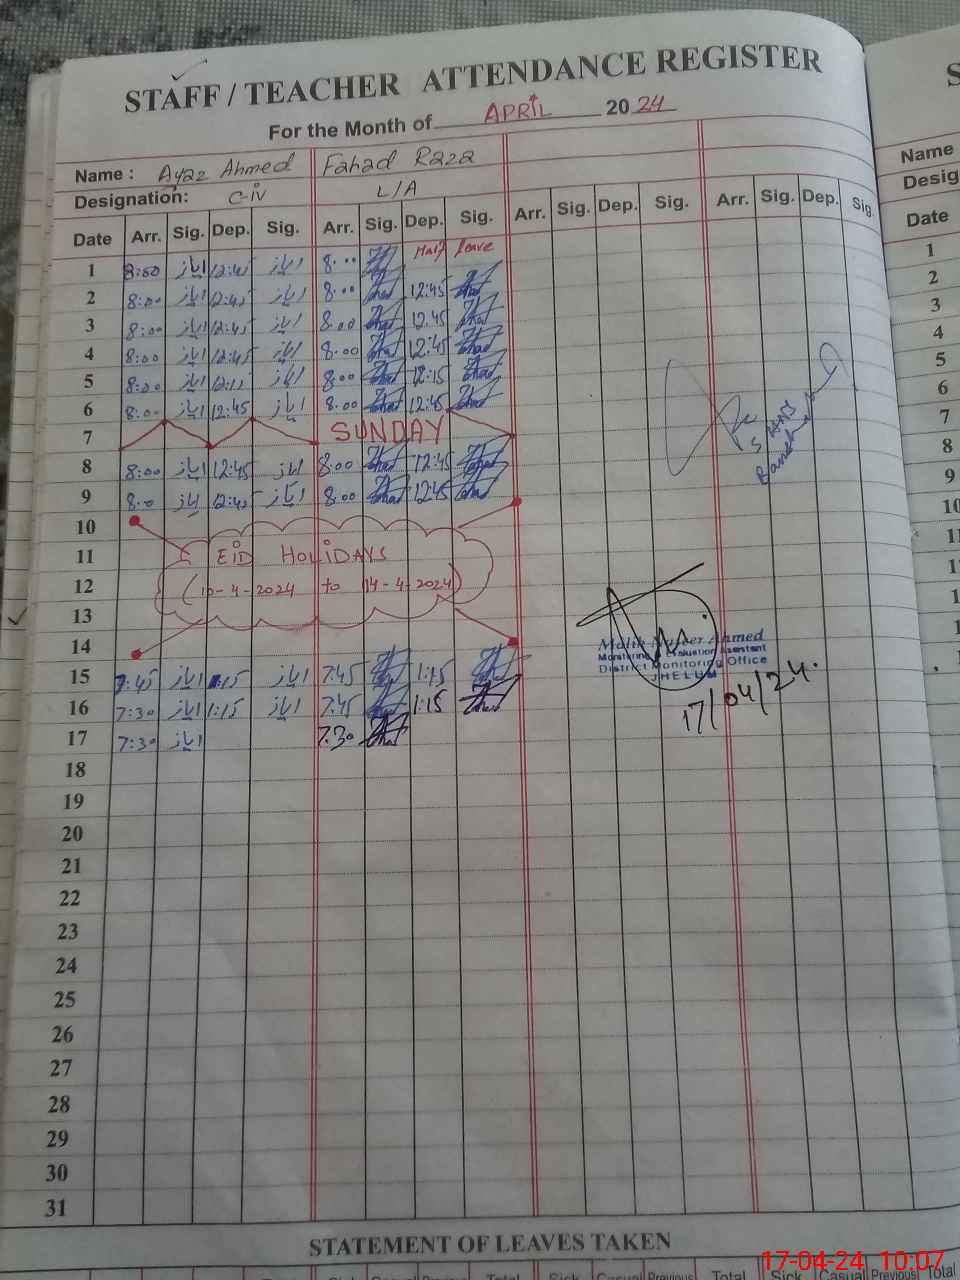 STAFF / TEACHER ATTENDANCE REGISTER
For the Month of APRIL 2024
Name : Ayaz Ahmed Fahad Raza
Designation: C-iv L/A
Date Arr. Sig. Dep. Sig. Arr. Sig. Dep. Sig. Arr. Sig. Dep. Sig. Arr. Sig. Dep. Sig.
1 8:00 ایاز 12:45 ایاز 8:00 Half leave
2 8:00 ایاز 12:45 ایاز 8:00 12:45
3 8:00 ایاز 12:45 ایاز 8:00 12:45
4 8:00 ایاز 12:45 ایاز 8:00 12:45
5 8:00 ایاز ایاز 8:00 12:15
6 8:00 ایاز 12:45 ایاز 8:00 12:45
7 SUNDAY
8 8:00 ایاز 12:45 ایاز 8:00 12:45
9 8:00 ایاز 12:45 ایاز 8:00 12:45
10
11 EID HOLIDAYS
12 (10-4-2024 to 14-4-2024)
13
14
15 7:45 ایاز 1:15 ایاز 7:45 1:15
16 7:30 ایاز 1:15 ایاز 7:45 1:15
17 7:30 ایاز 7:30
18
19
20
21
22
23
24
25
26
27
28
29
30
31
Ahmed
Monitoring Evaluation Assistant
District Monitoring Office
JHELUM
17/04/24.
STATEMENT OF LEAVES TAKEN
Total Sick Casual Previous Total
Name
Date
1
2
3
4
5
6
7
8
9
10
17-04-24 10:07